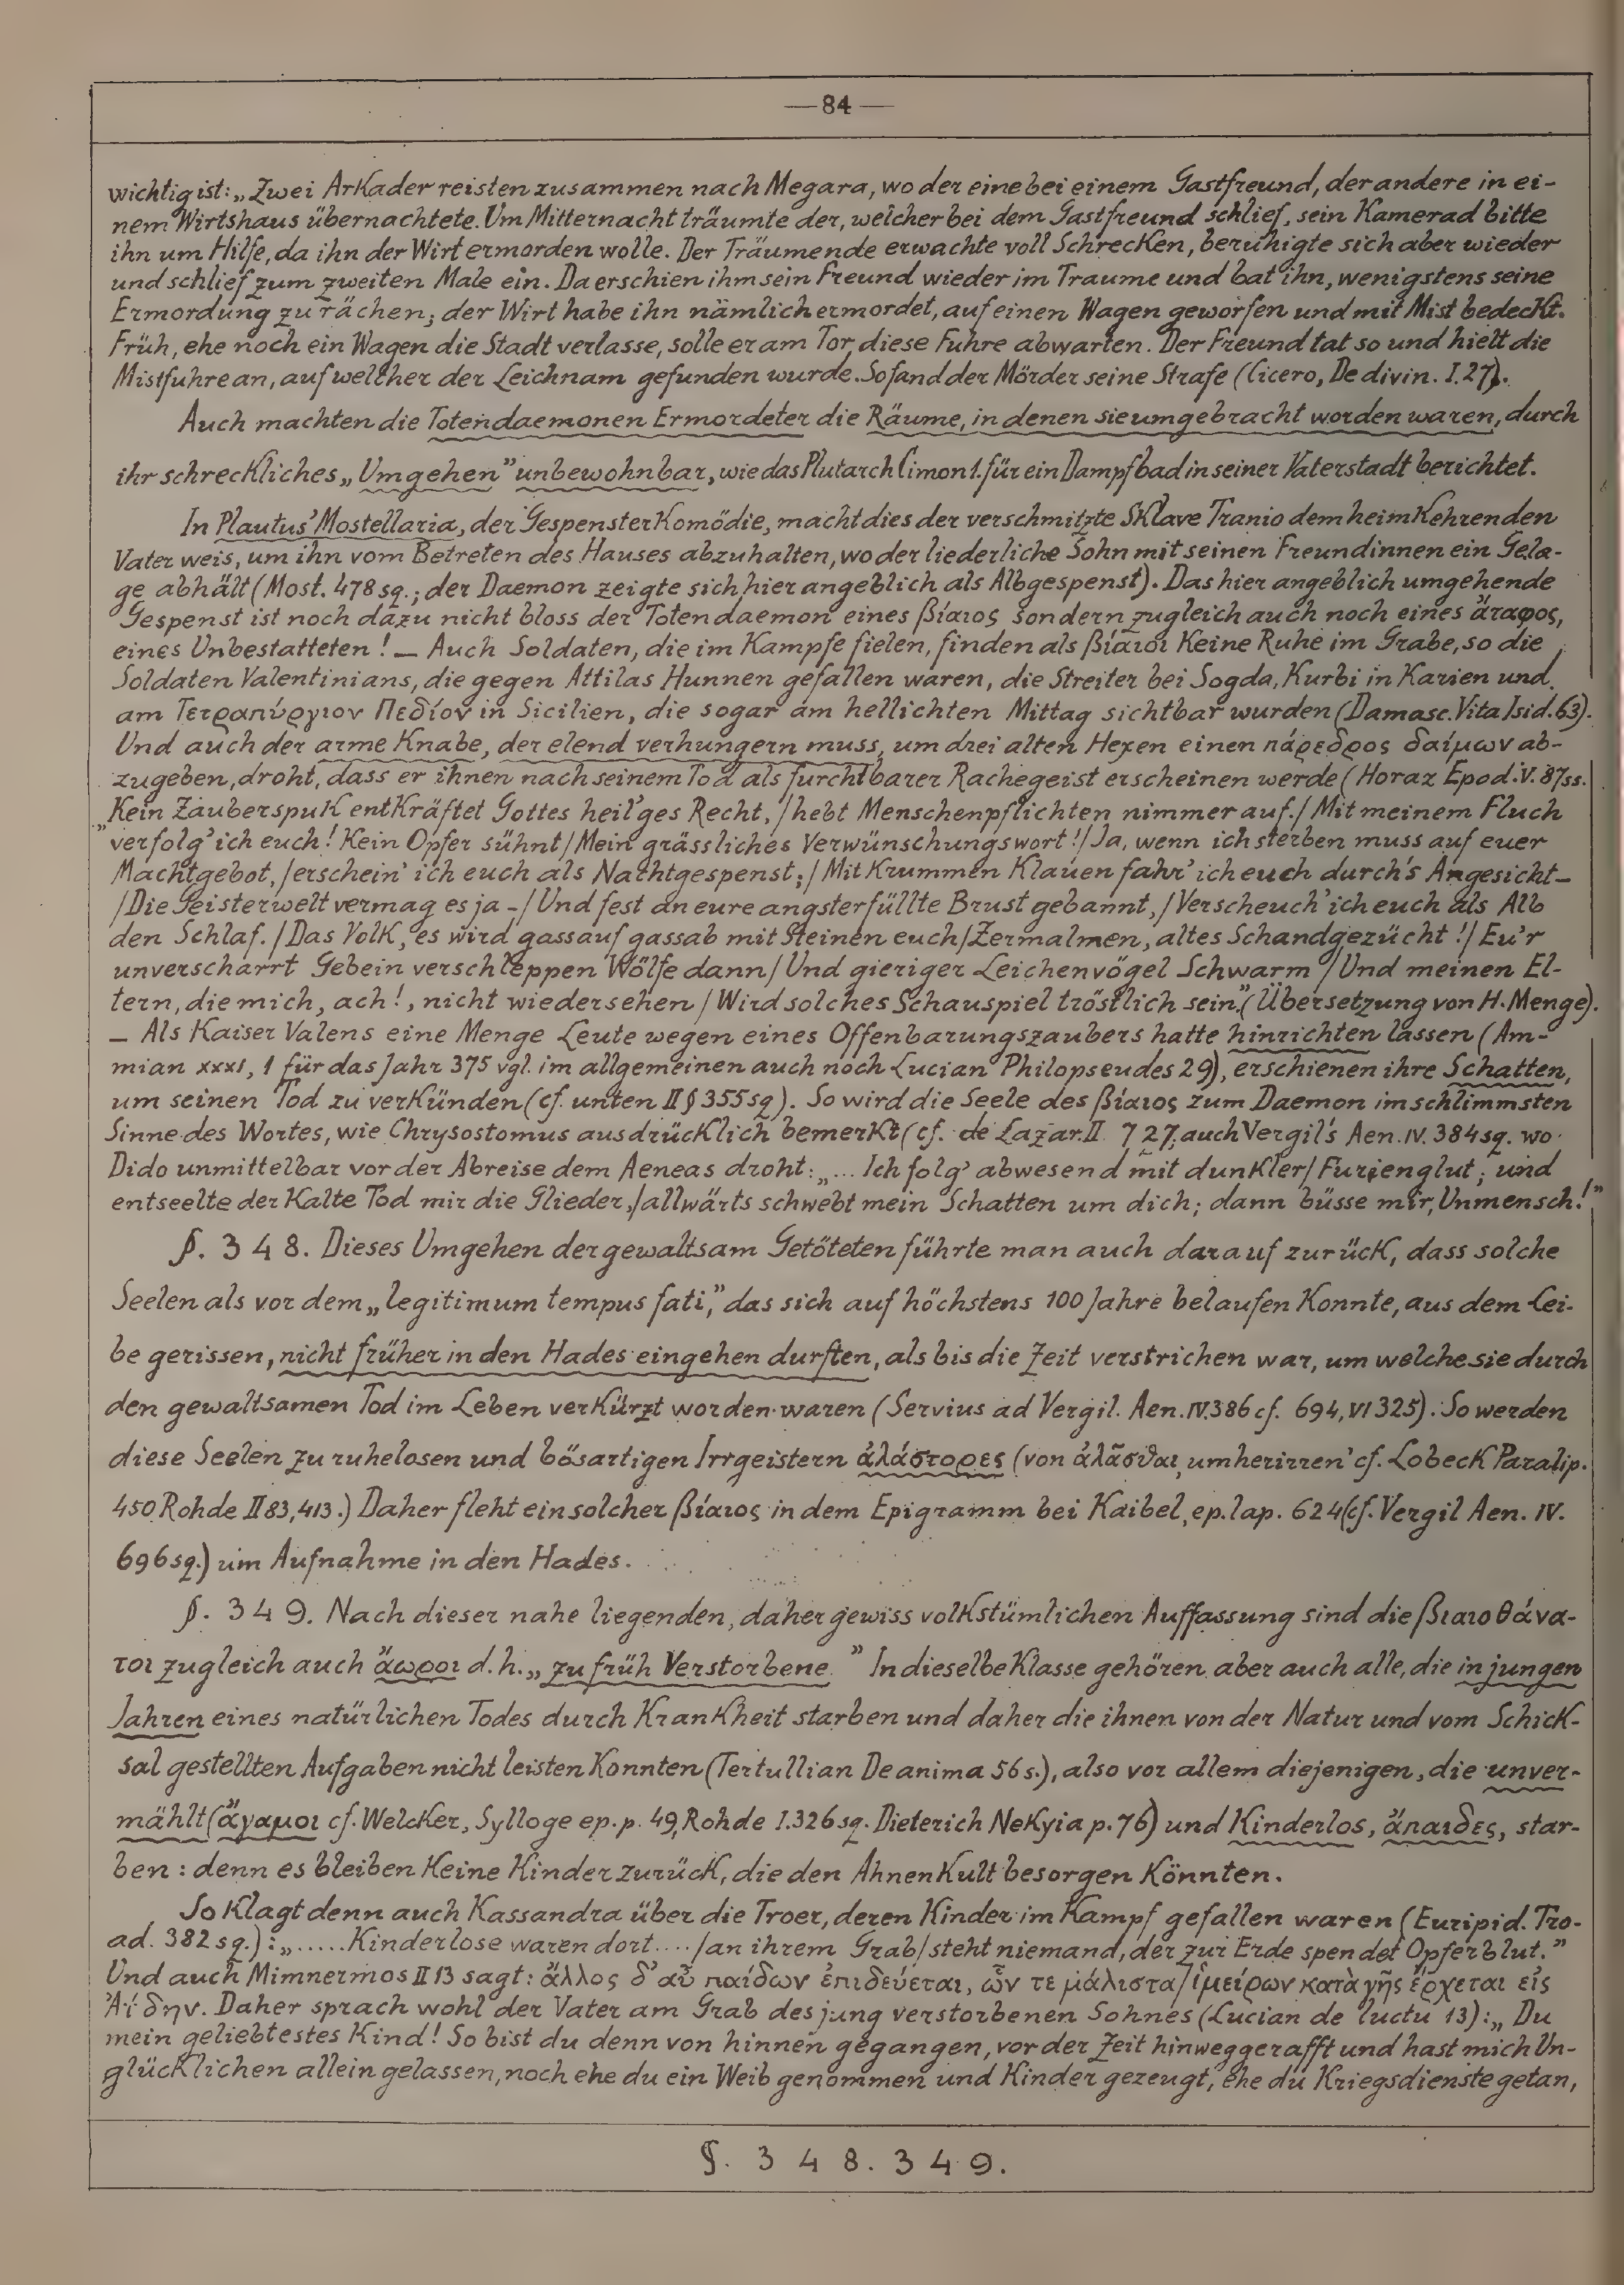 —84—
wichtig ist: „Zwei Arkader reisten zusammen nach Megara, wo der eine bei einem Gastfreund, der andere in ei-
nem Wirtshaus übernachtete. Um Mitternacht träumte der, welcher bei dem Gastfreund schlief, sein Kamerad bitte
ihn um Hilfe, da ihn der Wirt ermorden wolle. Der Träumende erwachte voll Schrecken, beruhigte sich aber wieder
und schlief zum zweiten Male ein. Da erschien ihm sein Freund wieder im Traume und bat ihn, wenigstens seine
Ermordung zu rächen; der Wirt habe ihn nämlich ermordet, auf einen Wagen geworfen und mit Mist bedeckt.
Früh, ehe noch ein Wagen die Stadt verlasse, solle er am Tor diese Fuhre abwarten. Der Freund tat so und hielt die
Mistfuhre an, auf welcher der Leichnam gefunden wurde. So fand der Mörder seine Strafe (Cicero, De divin. I. 27).
Auch machten die Totendaemonen Ermordeter die Räume, in denen sie umgebracht worden waren, durch
ihr schreckliches „Umgehen” unbewohnbar, wie das Plutarch Cimon 1. für ein Dampfbad in seiner Vaterstadt berichtet.
In Plautus' Mostellaria, der Gespensterkomödie, macht dies der verschmitzte Sklave Tranio dem heimkehrenden
Vater weis, um ihn vom Betreten des Hauses abzuhalten, wo der liederliche Sohn mit seinen Freundinnen ein Gela-
ge abhält (Most. 478 sq.; der Daemon zeigte sich hier angeblich als Albgespenst). Das hier angeblich umgehende
Gespenst ist noch dazu nicht bloss der Totendaemon eines βίαιος sondern zugleich auch noch eines ἄταφος,
eines Unbestatteten! — Auch Soldaten, die im Kampfe fielen, finden als βίαιοι keine Ruhe im Grabe, so die
Soldaten Valentinians, die gegen Attilas Hunnen gefallen waren, die Streiter bei Sogda, Kurbi in Karien und
am Τετραπύργιον Πεδίον in Sicilien, die sogar am hellichten Mittag sichtbar wurden (Damasc. Vita Isid. 63).
Und auch der arme Knabe, der elend verhungern muss, um drei alten Hexen einen πάρεδρος δαίμων ab-
zugeben, droht, dass er ihnen nach seinem Tod als furchtbarer Rachegeist erscheinen werde (Horaz Epod. V. 87 ss.
„Kein Zauberspuk entkräftet Gottes heil'ges Recht, / hebt Menschenpflichten nimmer auf. / Mit meinem Fluch
verfolg' ich euch! Kein Opfer sühnt / Mein grässliches Verwünschungswort! / Ja, wenn ich sterben muss auf euer
Machtgebot, / erschein' ich euch als Nachtgespenst; / Mit krummen Klauen fahr' ich euch durch's Angesicht —
/ Die Geisterwelt vermag es ja - / Und fest an eure angsterfüllte Brust gebannt, / Verscheuch' ich euch als Alb
den Schlaf. / Das Volk, es wird gassauf gassab mit Steinen euch / Zermalmen, altes Schandgezücht! / Eu'r
unverscharrt Gebein verschleppen Wölfe dann / Und gieriger Leichenvögel Schwarm / Und meinen El-
tern, die mich, ach!, nicht wiedersehen / Wird solches Schauspiel tröstlich sein.” (Übersetzung von H. Menge).
— Als Kaiser Valens eine Menge Leute wegen eines Offenbarungszaubers hatte hinrichten lassen (Am-
mian XXXI, 1 für das Jahr 375 vgl. im allgemeinen auch noch Lucian Philopseudes 29), erschienen ihre Schatten,
um seinen Tod zu verkünden (cf. unten II § 355 sq). So wird die Seele des βίαιος zum Daemon im schlimmsten
Sinne des Wortes, wie Chrysostomus ausdrücklich bemerkt (cf. de Lazar. II 727, auch Vergil's Aen. IV. 384 sq. wo
Dido unmittelbar vor der Abreise dem Aeneas droht: „... Ich folg' abwesend mit dunkler / Furienglut; und
entseelte der kalte Tod mir die Glieder, / allwärts schwebt mein Schatten um dich; dann büsse mir, Unmensch!”
§. 348. Dieses Umgehen der gewaltsam Getöteten führte man auch darauf zurück, dass solche
Seelen als vor dem „legitimum tempus fati,” das sich auf höchstens 100 Jahre belaufen konnte, aus dem Lei-
be gerissen, nicht früher in den Hades eingehen durften, als bis die Zeit verstrichen war, um welche sie durch
den gewaltsamen Tod im Leben verkürzt worden waren (Servius ad Vergil. Aen. IV. 386 cf. 694, VI 325). So werden
diese Seelen zu ruhelosen und bösartigen Irrgeistern ἀλάστορες (von ἀλᾶσθαι, umherirren' cf. Lobeck Paralip.
450 Rohde II 83, 413.) Daher fleht ein solcher βίαιος in dem Epigramm bei Kaibel, ep. lap. 624 (cf. Vergil Aen. IV.
696 sq.) um Aufnahme in den Hades.
§. 349. Nach dieser nahe liegenden, daher gewiss volkstümlichen Auffassung sind die βιαιοθάνα-
τοι zugleich auch ἄωροι d. h. „zu früh Verstorbene.” In dieselbe Klasse gehören aber auch alle, die in jungen
Jahren eines natürlichen Todes durch Krankheit starben und daher die ihnen von der Natur und vom Schick-
sal gestellten Aufgaben nicht leisten konnten (Tertullian De anima 56 s.), also vor allem diejenigen, die unver-
mählt (ἄγαμοι cf. Welcker, Sylloge ep. p. 49, Rohde I. 326 sq. Dieterich Nekyia p. 76) und kinderlos, ἄπαιδες, star-
ben: denn es bleiben keine Kinder zurück, die den Ahnenkult besorgen könnten.
So klagt denn auch Kassandra über die Troer, deren Kinder im Kampf gefallen waren (Euripid. Tro-
ad. 382 sq.): „..... Kinderlose waren dort .... / an ihrem Grab / steht niemand, der zur Erde spendet Opferblut.”
Und auch Mimnermos II 13 sagt: ἄλλος δ' αὖ παίδων ἐπιδεύεται, ὧν τε μάλιστα / ἱμείρων κατὰ γῆς ἔρχεται εἰς
Ἀΐδην. Daher sprach wohl der Vater am Grab des jung verstorbenen Sohnes (Lucian de luctu 13): „Du
mein geliebtestes Kind! So bist du denn von hinnen gegangen, vor der Zeit hinweggerafft und hast mich Un-
glücklichen allein gelassen, noch ehe du ein Weib genommen und Kinder gezeugt, ehe du Kriegsdienste getan,
§. 348. 349.